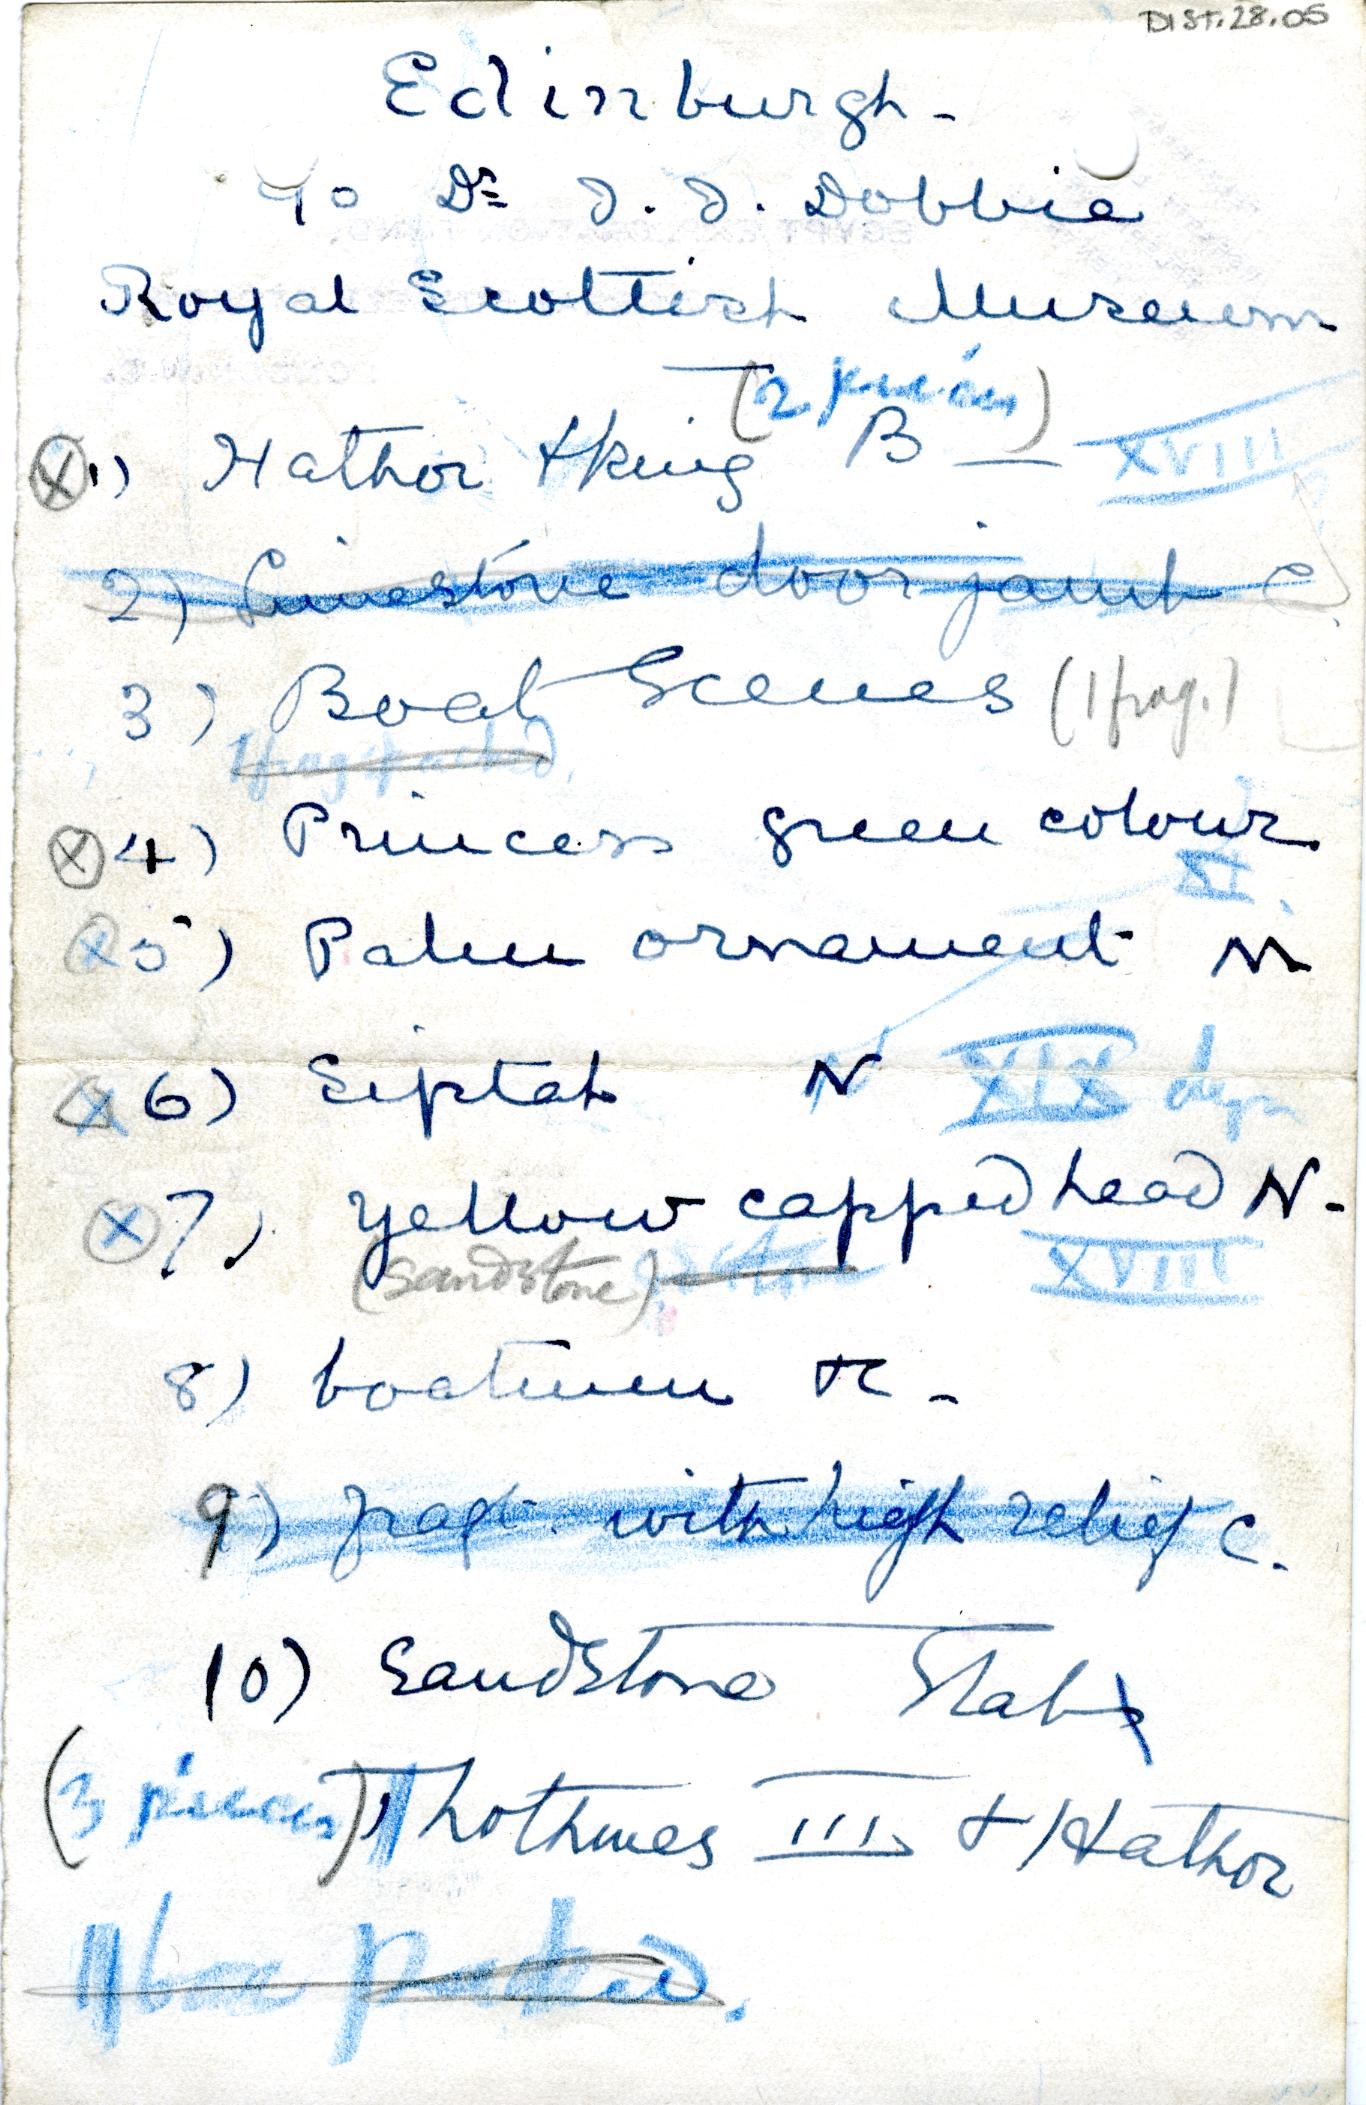 DIST.28.05
Edinburgh -
c/o Dr J. J. Dobbie
Royal Scottish Museum
(2 pieces)
X 1) Hathor & king B — XVIII
2) Limestone door jamb C.
3) Boat Scenes (1 frag.)
1 frag packed.
X 4) Princess green colour
XI.
X 5) Palm ornament N
X 6) Siptah N XIX dyn
X 7) Yellow capped head N -
(Sandstone) XVIII
8) boatmen -
9) fragt. with high relief C.
10) Sandstone Slab
(3 pieces) Thothmes III & Hathor
packed.